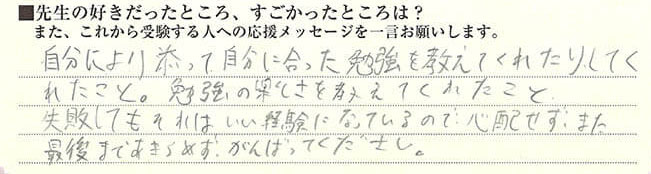 ■先生の好きだったところ、すごかったところは？
また、これから受験する人への応援メッセージを一言お願いします。
自分により添って自分に合った勉強を教えてくれたりしてく
れたこと。勉強の楽しさを教えてくれたこと
失敗してもそれはいい経験になっているので心配せず、また
最後まであきらめず、がんばってくださし。